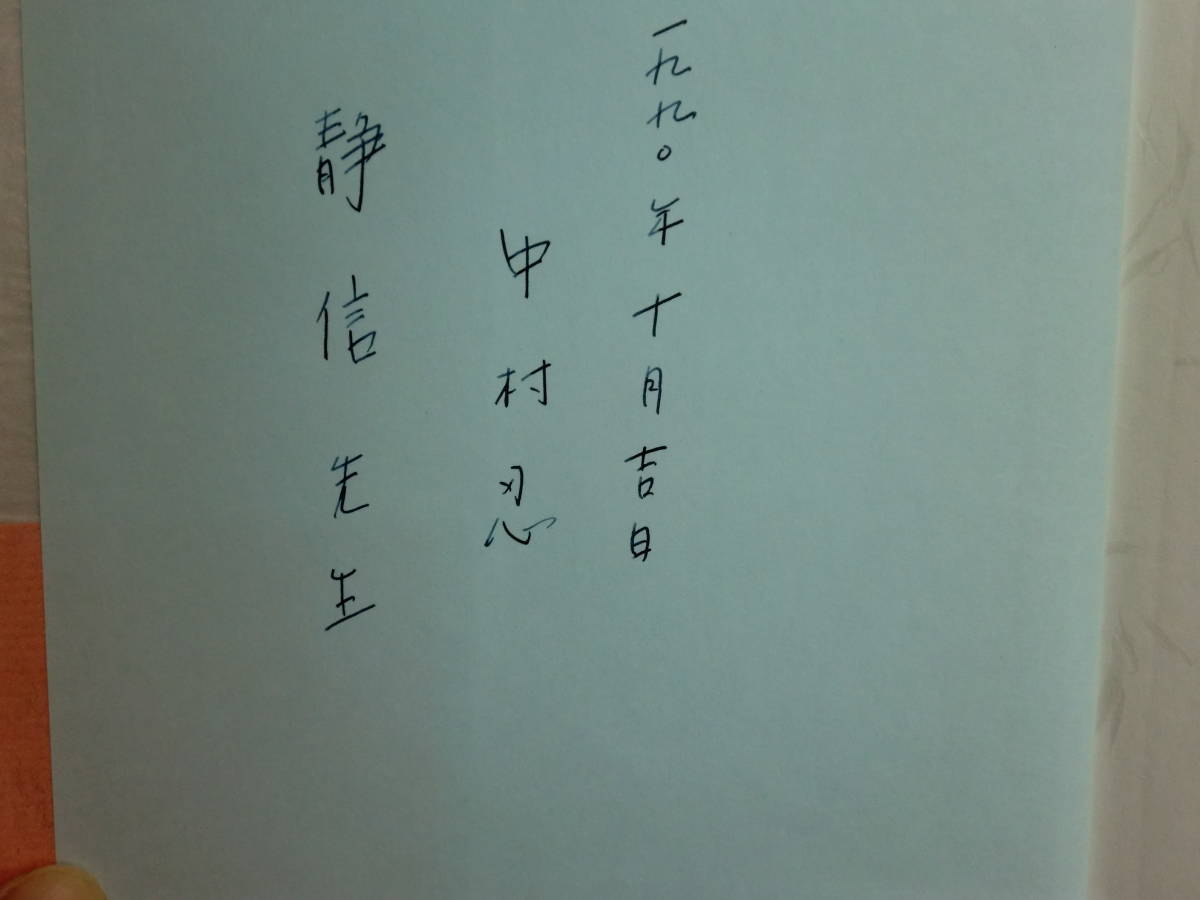 一九九〇年十月吉日
中村忍
靜信先生